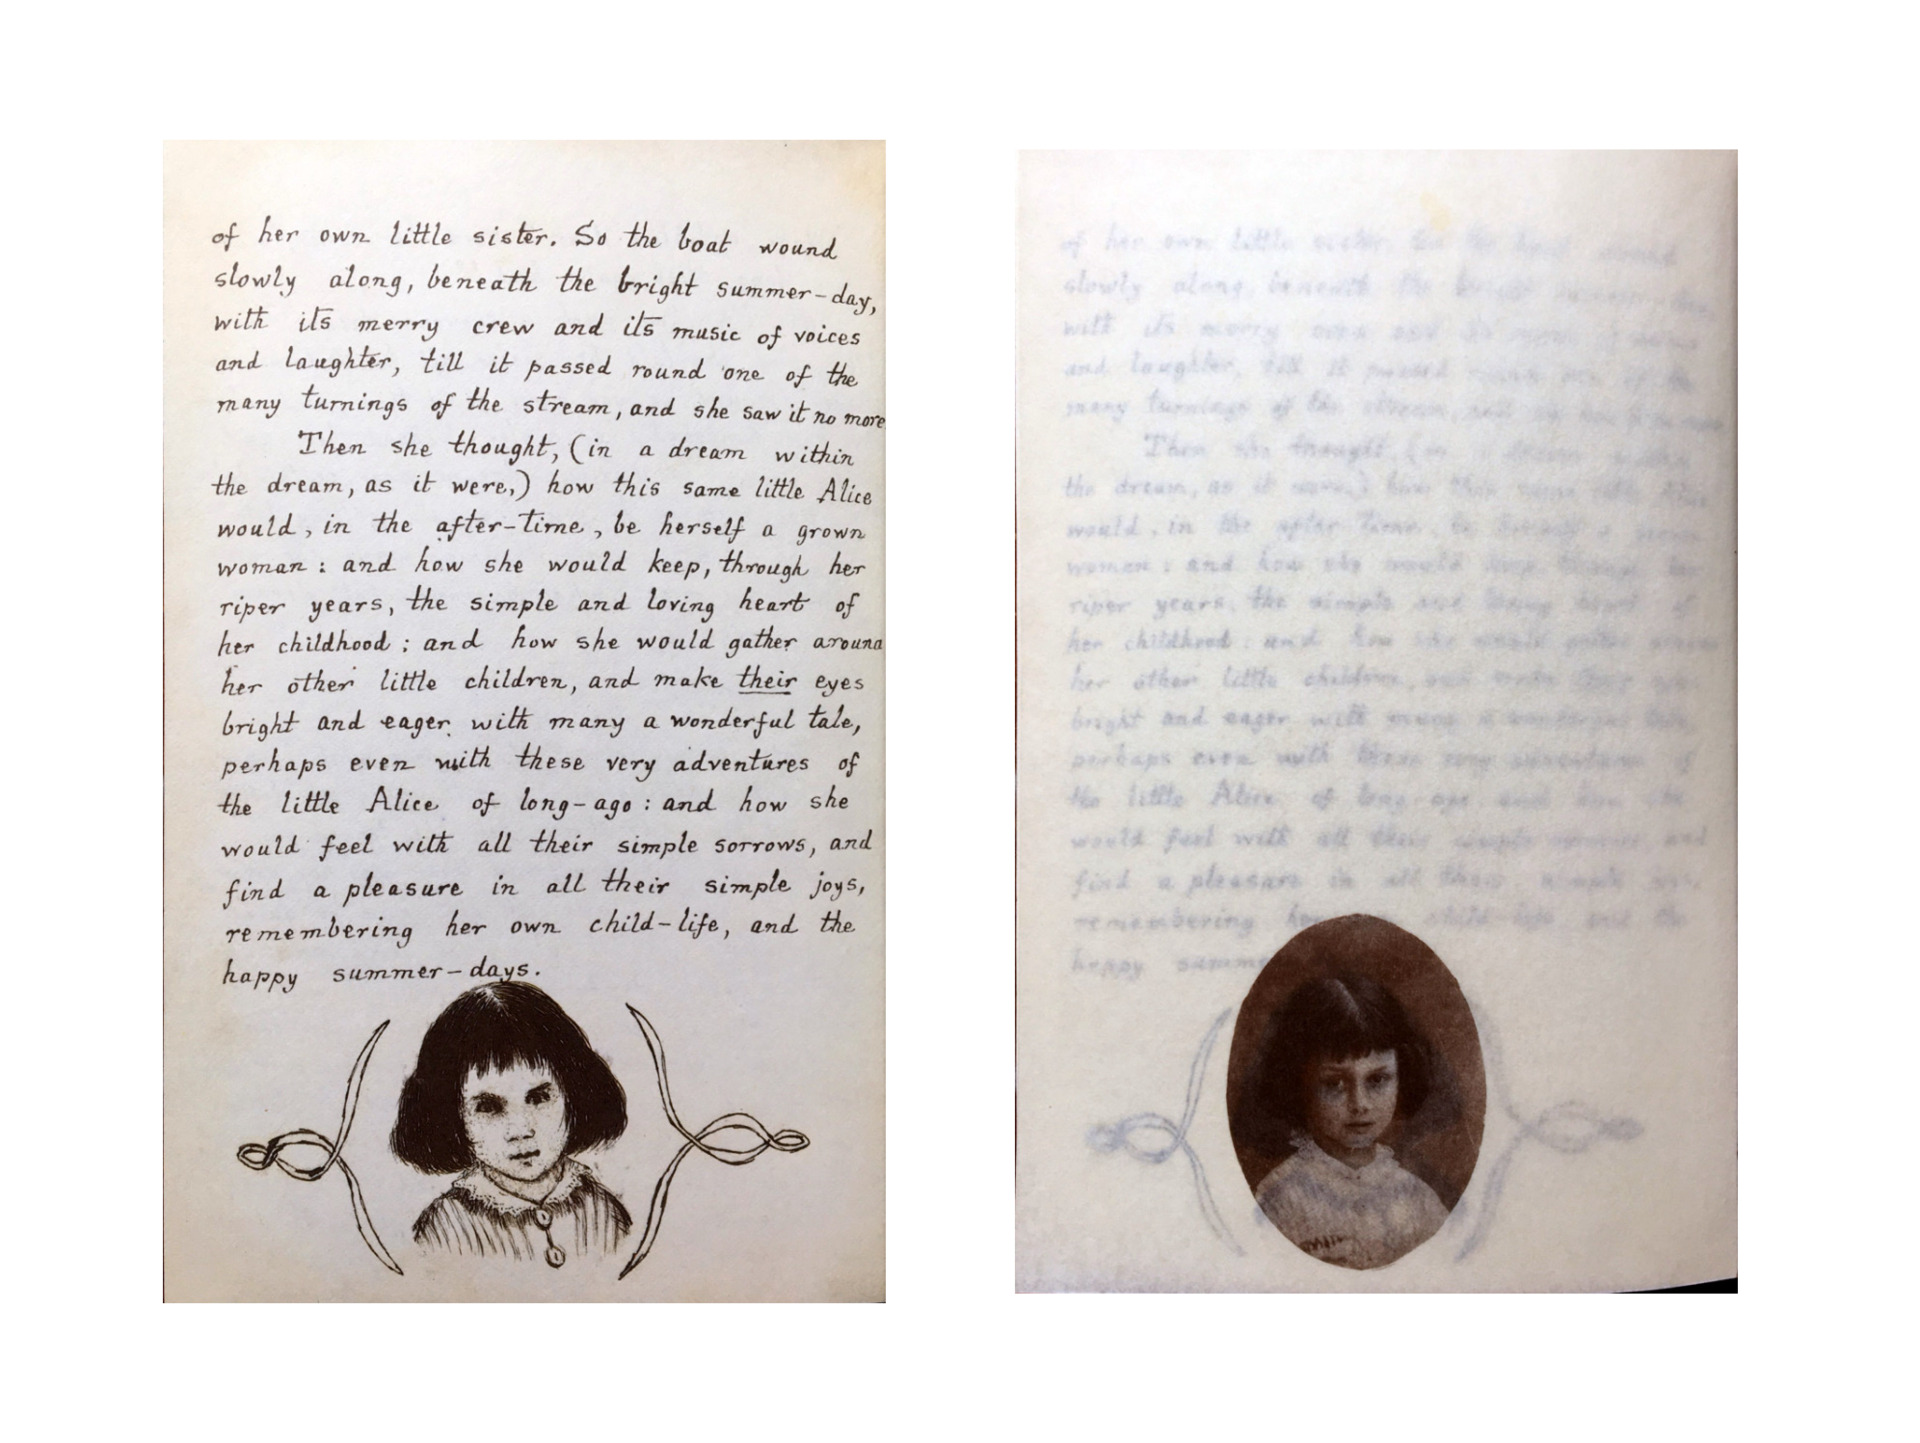 of her own little sister. So the boat wound
slowly along, beneath the bright summer-day,
with its merry crew and its music of voices
and laughter, till it passed round one of the
many turnings of the stream, and she saw it no more
Then she thought, (in a dream within
the dream, as it were,) how this same little Alice
would, in the after-time, be herself a grown
woman: and how she would keep, through her
riper years, the simple and loving heart of
her childhood: and how she would gather around
her other little children, and make their eyes
bright and eager with many a wonderful tale,
perhaps even with these very adventures of
the little Alice of long-ago: and how she
would feel with all their simple sorrows, and
find a pleasure in all their simple joys,
remembering her own child-life, and the
happy summer-days.
of her own little
slowly along, beneath the
with its merry
and laughter, till it passed
many turnings of the stream
Then she thought, (in a dream
the dream, as it were,) how this same little Alice
would, in the after-time, be herself a grown
woman: and how she would
riper years, the simple and loving heart of
her childhood: and how she would
her other little children,
bright and eager with many a wonderful
perhaps even with these very adventures of
the little Alice of long-ago
would feel with all their simple
find a pleasure in all their simple
remembering her child-life and the
happy